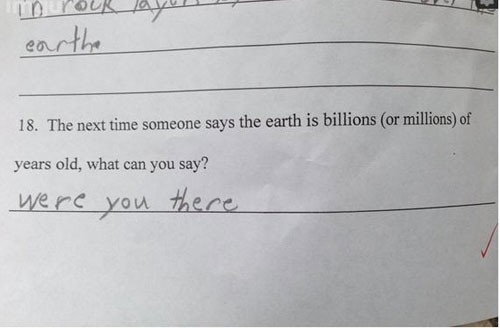 in rock
earth
18. The next time someone says the earth is billions (or millions) of
years old, what can you say?
were you there